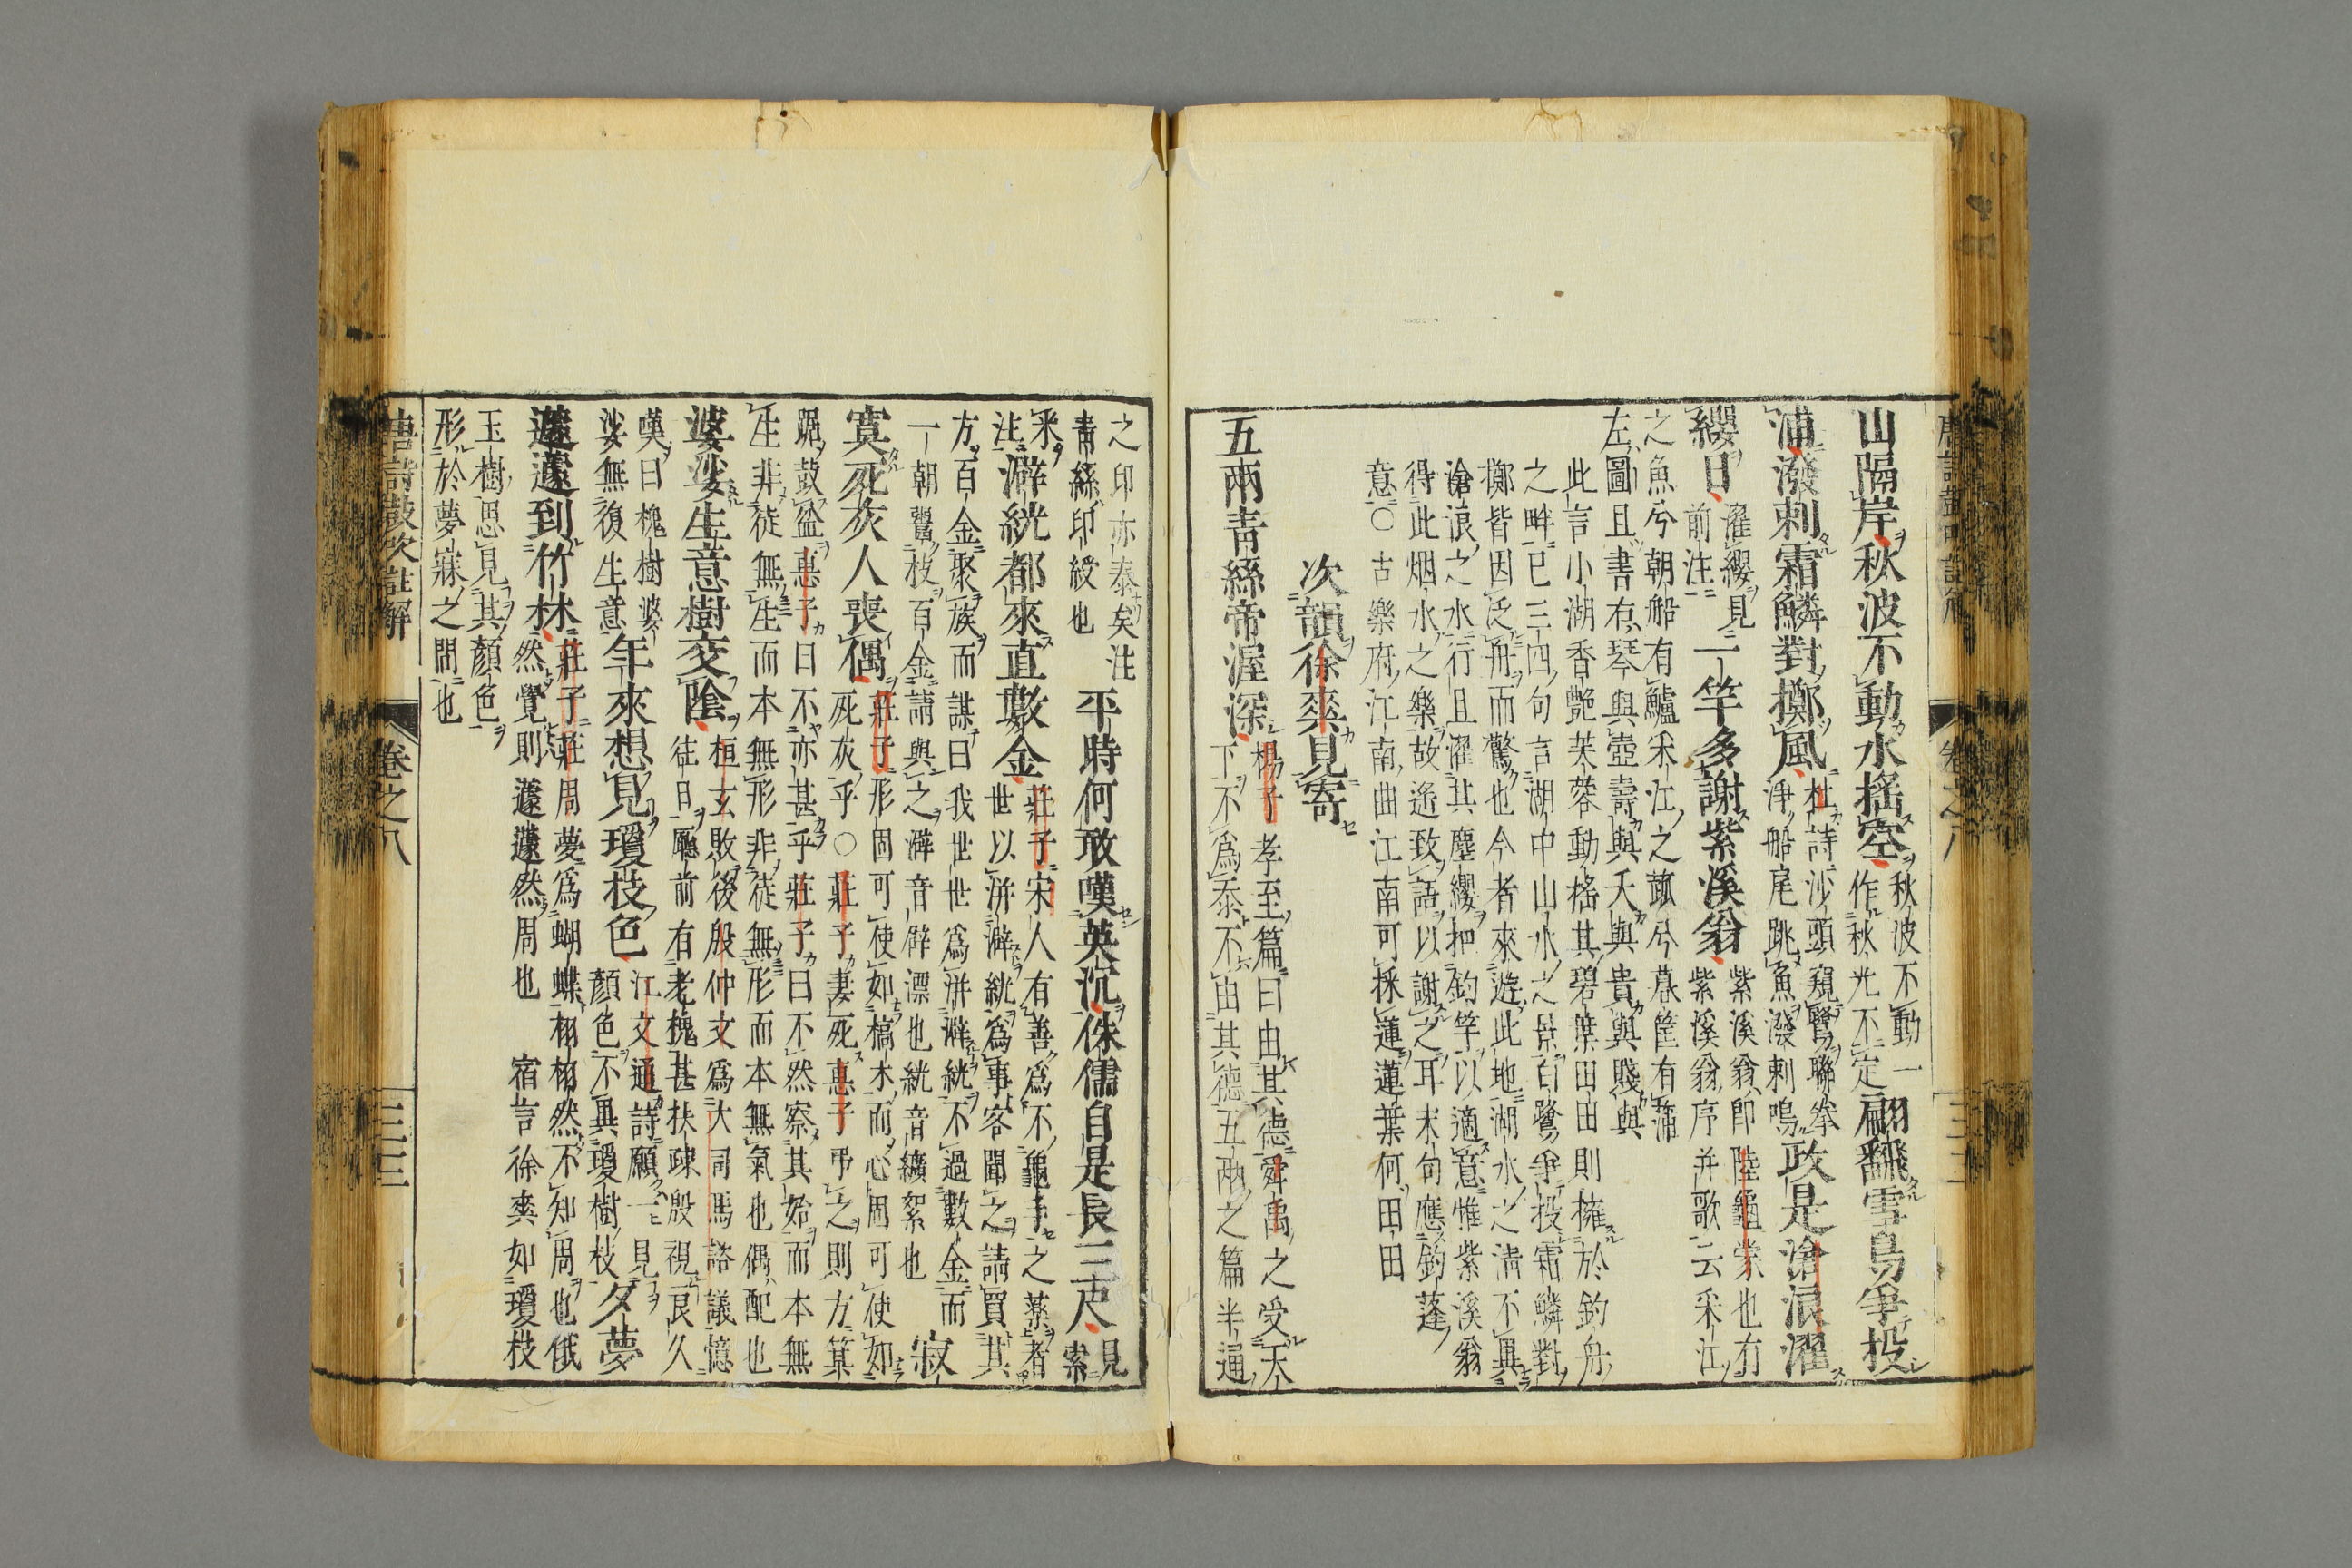 山隔岸秋波不動水搖空秋波不動一作秋光不定翩翻雪鳥爭投
浦潑剌霜鱗對擲風杜詩沙頭窺鷺聯拳淨船尾跳魚潑剌鳴政是滄浪濯
纓日濯纓見前注二竿多謝紫溪翁紫溪翁即陸龜蒙也有紫溪翁序并歌云采江
之魚兮朝船有鱸采江之蓏兮暮筐有蒲
左圖且書右琴與壺壽與夭與貴與賤與
此言小湖香艷芙蓉動搖其碧葉田田則擁於釣舟
之畔已三四句言湖中山水之景白鷺爭投霜鱗對
擲皆因泛舟而驚也今者來遊此地湖水之淸不異
滄浪之水行且濯其塵纓把釣竿以適意惟紫溪翁
得此烟水之樂故遙致語以謝之耳末句應釣蓬
意〇古樂府江南曲江南可採蓮蓮葉何田田
次韻徐爽見寄
五兩青絲帝渥深楊子孝至篇曰由其德舜禹之受天下不爲泰不由其德五兩之篇半通
之印亦泰矣注青絲印綬也平時何敢嘆英沉侏儒自是長三尺見索
釆注澼絖都來直數金莊子宋人有善爲不龜手之藥者世以洴澼絖爲事客聞之請買其
方百金聚族而謀曰我世世爲洴澼絖不過數金而
一朝鬻技百金請與之澼音僻漂也絖音纊絮也寂
寞死灰人喪偶莊子形固可使如槁木而心固可使如死灰乎〇莊子妻死惠子弔之則方箕
踞鼓盆惠子曰不亦甚乎莊子曰不然察其始而本無
生非徒無生而本無形非徒無形而本無氣也偶配也
婆娑生意樹交陰桓玄敗後殷仲文爲大司馬諮議憶往日廳前有老槐甚扶疎殷視良久
嘆曰槐樹婆娑無復生意年來想見瓊枝色江文通詩願一見顔色不異瓊樹枝夕夢
蘧蘧到竹林莊子莊周夢爲蝴蝶栩栩然不知周也俄然覺則蘧蘧然周也宿言徐爽如瓊枝
玉樹思見其顔色
形於夢寐之間也
唐詩鼓吹註解
卷之八
三三